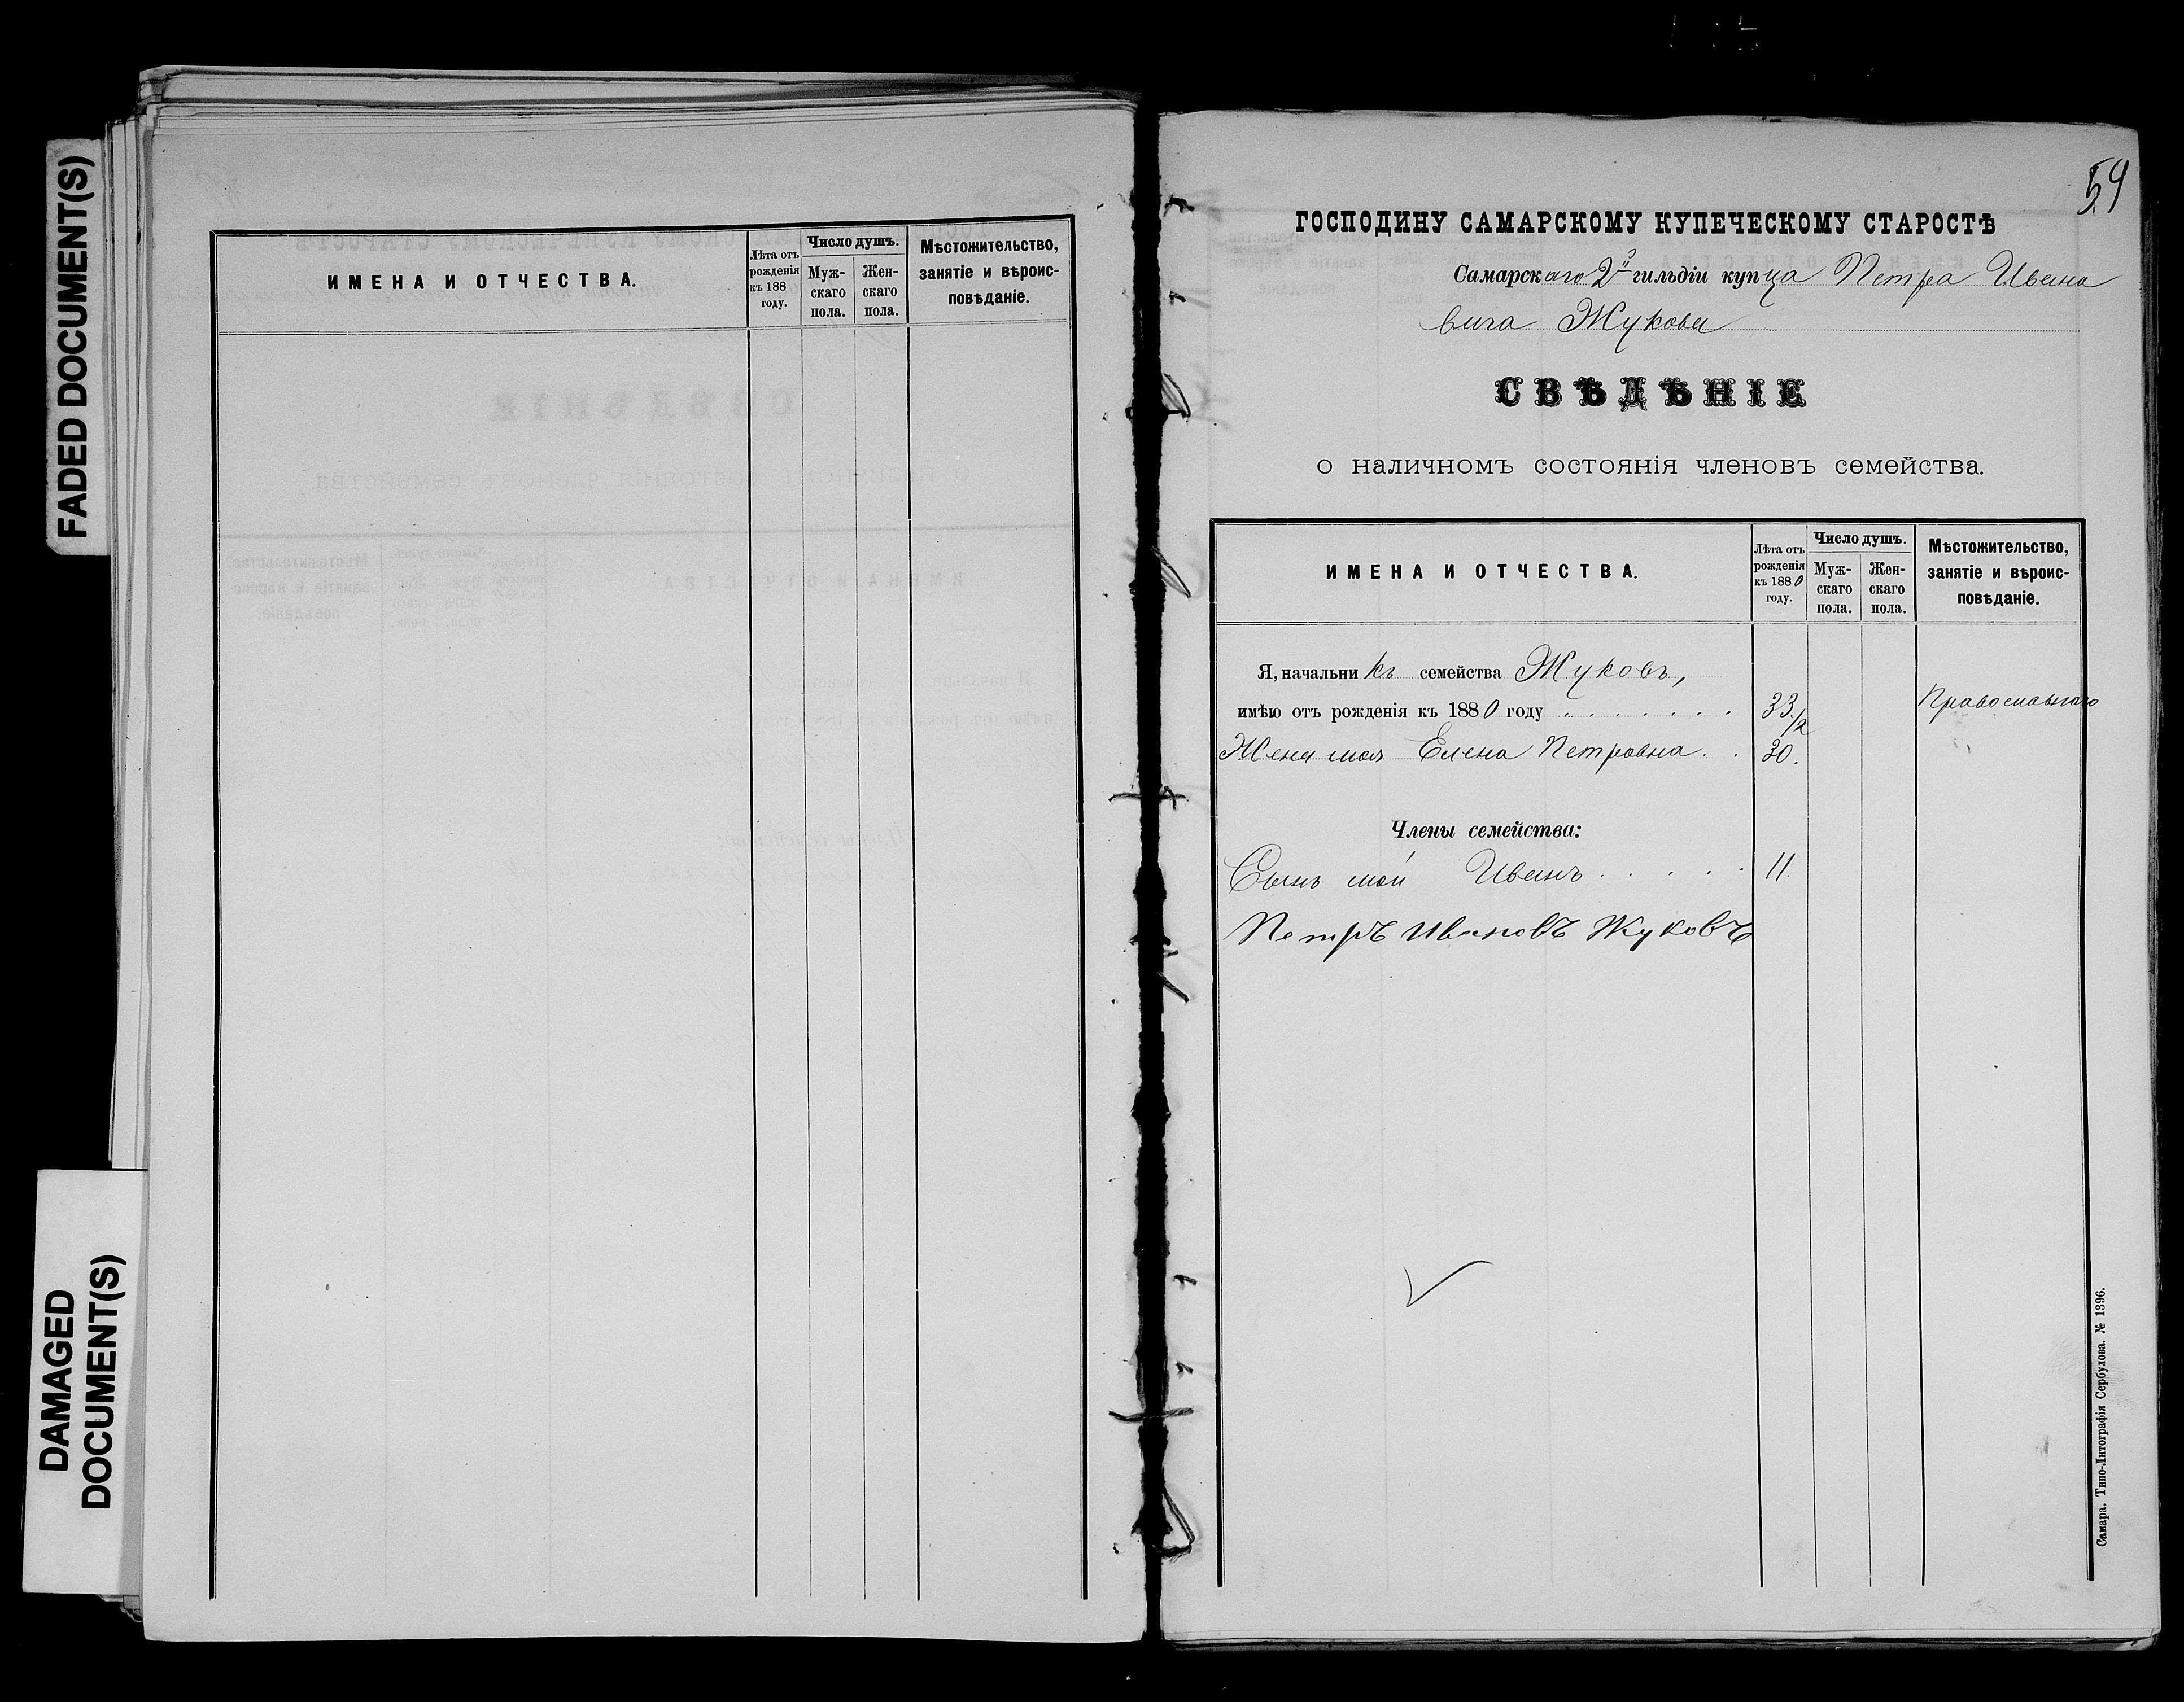 FADED DOCUMENT(S)
DAMAGED
DOCUMENT(S)
ИМЕНА И ОТЧЕСТВА.
Лѣта отъ
рожденія
къ 188
году.
Число душъ.
Муж-
скаго
пола.
Жен-
скаго
пола.
Мѣстожительство,
занятіе и вѣроис-
повѣданіе.
54
ГОСПОДИНУ САМАРСКОМУ КУПЕЧЕСКОМУ СТАРОСТѢ
Самарскаго 2й гильдіи купца Петра Ивано
вича Жукова
СВѢДѢНІЕ
о наличномъ состоянія членовъ семейства.
ИМЕНА И ОТЧЕСТВА.
Лѣта отъ
рожденія
къ 1880
году.
Число душъ.
Муж-
скаго
пола.
Жен-
скаго
пола.
Мѣстожительство,
занятіе и вѣроис-
повѣданіе.
Я, начальникъ семейства Жуковъ,
имѣю отъ рожденія къ 1880 году . . . . . . . 33 1/2 Православнаго
Жена моя Елена Петровна . . 30.
Члены семейства:
Сынъ мой Иванъ . . . . . 11.
Петръ Ивановъ Жуковъ
Самара. Типо-Литографія Сербулова. № 1396.